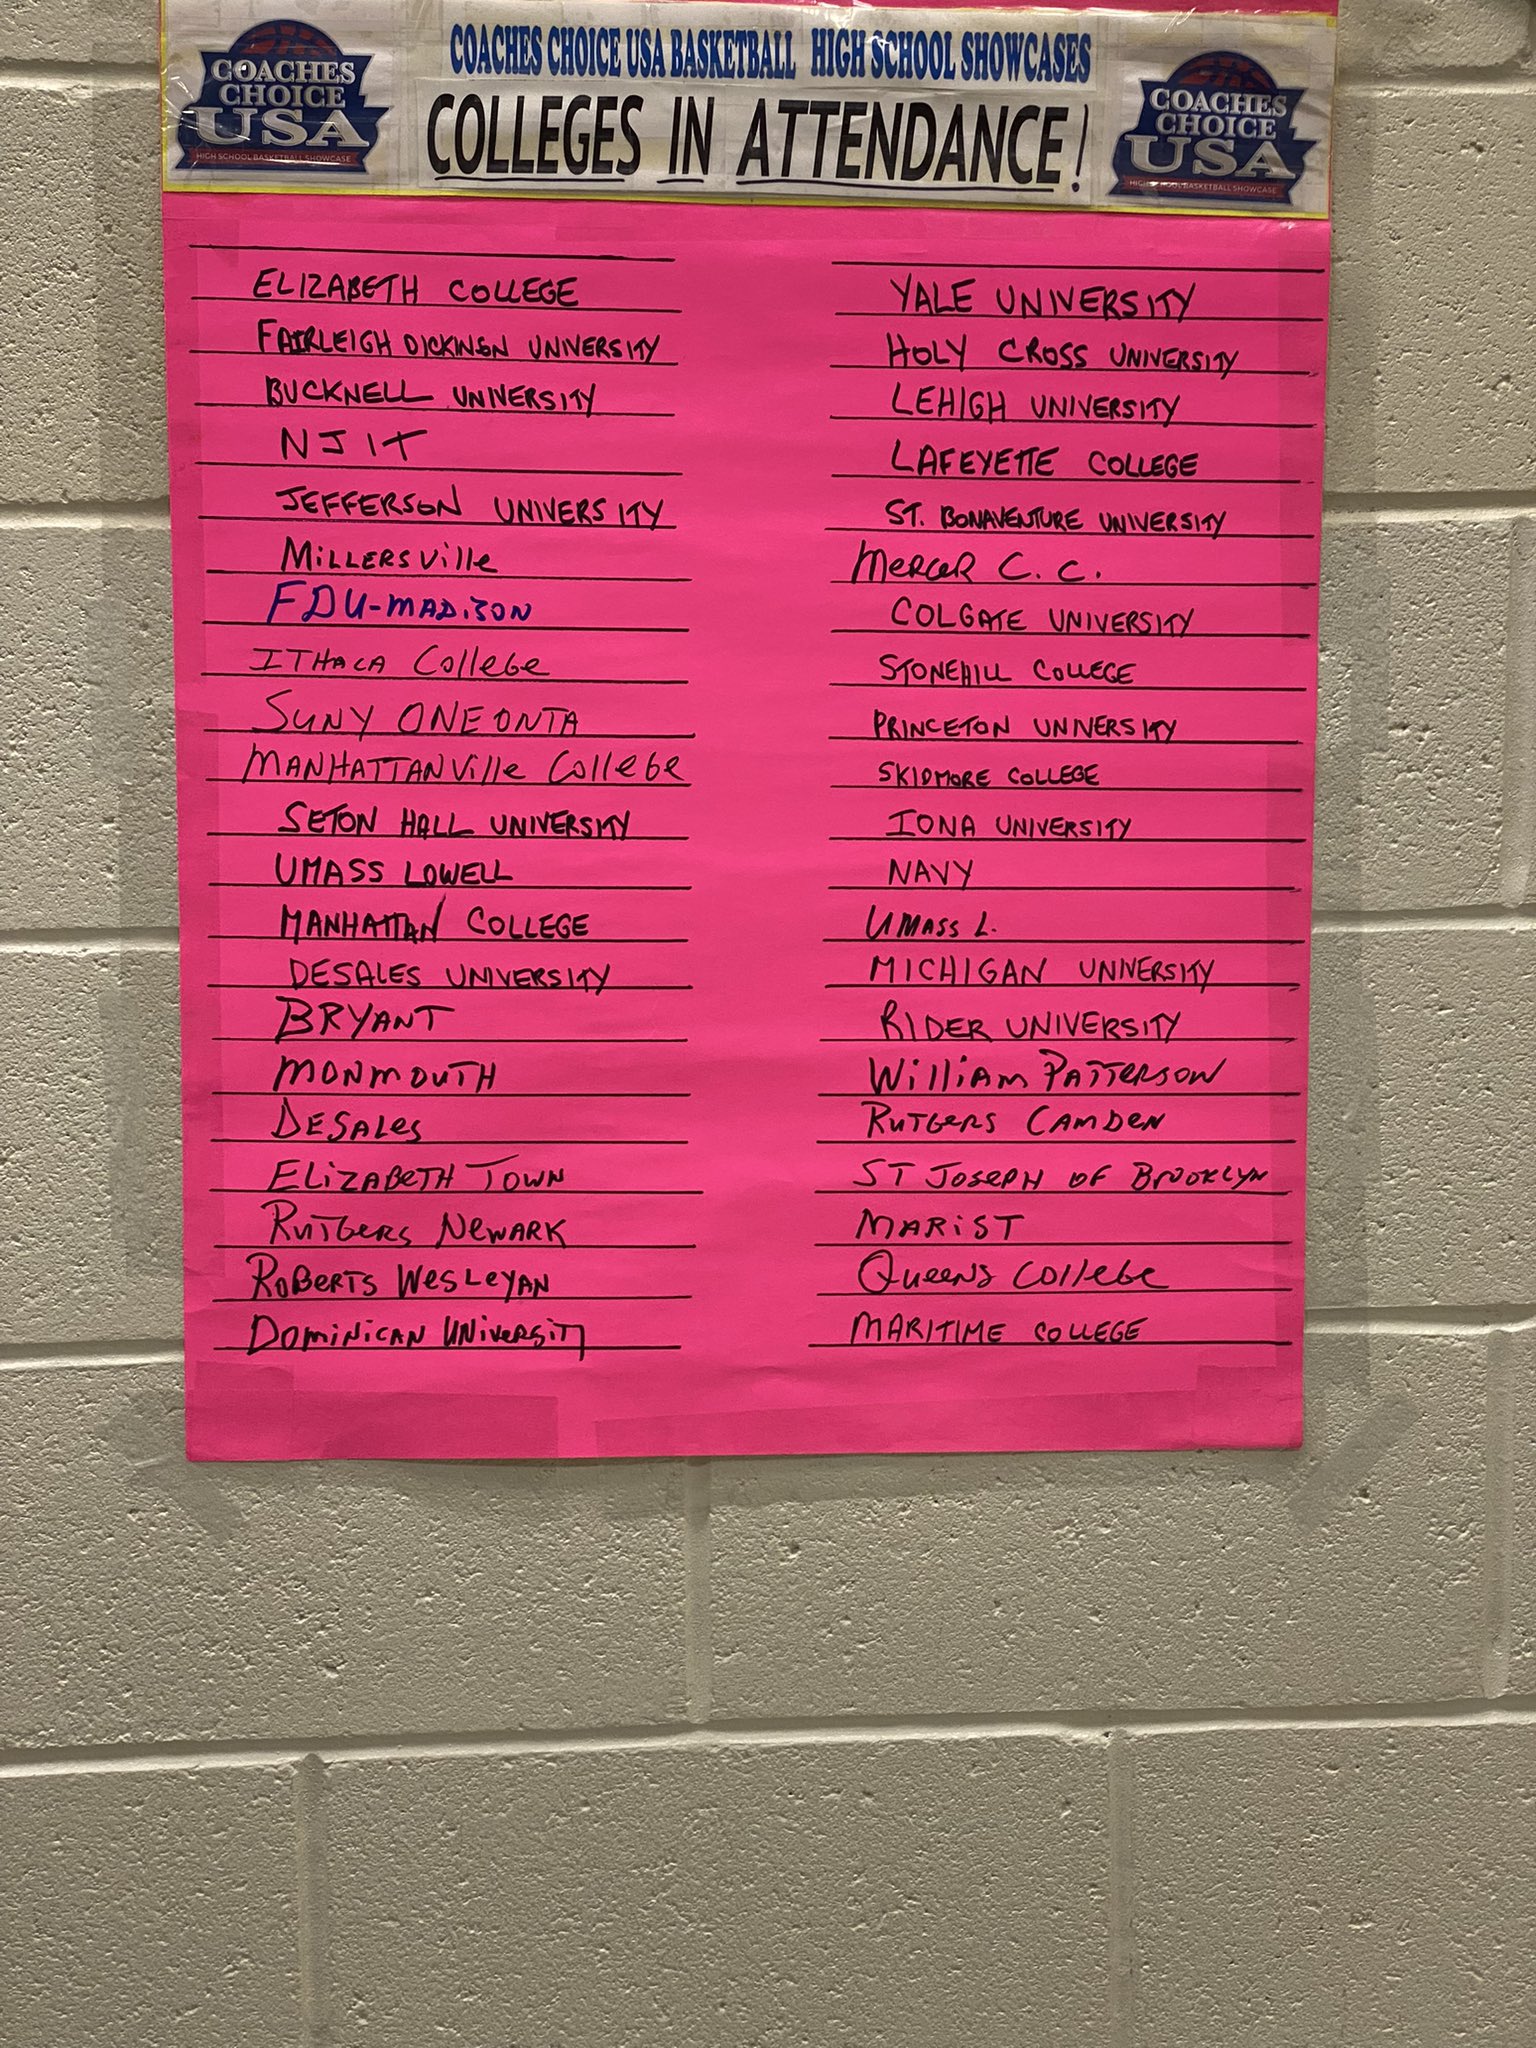 COACHES CHOICE USA BASKETBALL HIGH SCHOOL SHOWCASES
COLLEGES IN ATTENDANCE!
COACHES
CHOICE
USA
HIGH SCHOOL BASKETBALL SHOWCASE
COACHES
CHOICE
USA
HIGH SCHOOL BASKETBALL SHOWCASE
ELIZABETH COLLEGE
FAIRLEIGH DICKINSON UNIVERSITY
BUCKNELL UNIVERSITY
NJIT
JEFFERSON UNIVERSITY
MILLERSVille
FDU-MADISON
ITHACA College
SUNY ONEONTA
MANHATTANVille College
SETON HALL UNIVERSITY
UMASS LOWELL
MANHATTAN COLLEGE
DESALES UNIVERSITY
BRYANT
MONMOUTH
DESALes
ELIZABETH TOWN
RUTGERS NEWARK
ROBERTS WESLEYAN
DOMINICAN UNIVERSITY
YALE UNIVERSITY
HOLY CROSS UNIVERSITY
LEHIGH UNIVERSITY
LAFEYETTE COLLEGE
ST. BONAVENTURE UNIVERSITY
MERCER C.C.
COLGATE UNIVERSITY
STONEHILL COLLEGE
PRINCETON UNIVERSITY
SKIDMORE COLLEGE
IONA UNIVERSITY
NAVY
UMASS L.
MICHIGAN UNIVERSITY
RIDER UNIVERSITY
WilliAM PATTERSON
RUTGERS CAMDEN
ST JOSEPH OF BROOKLYN
MARIST
QUEENS COllege
MARITIME COLLEGE